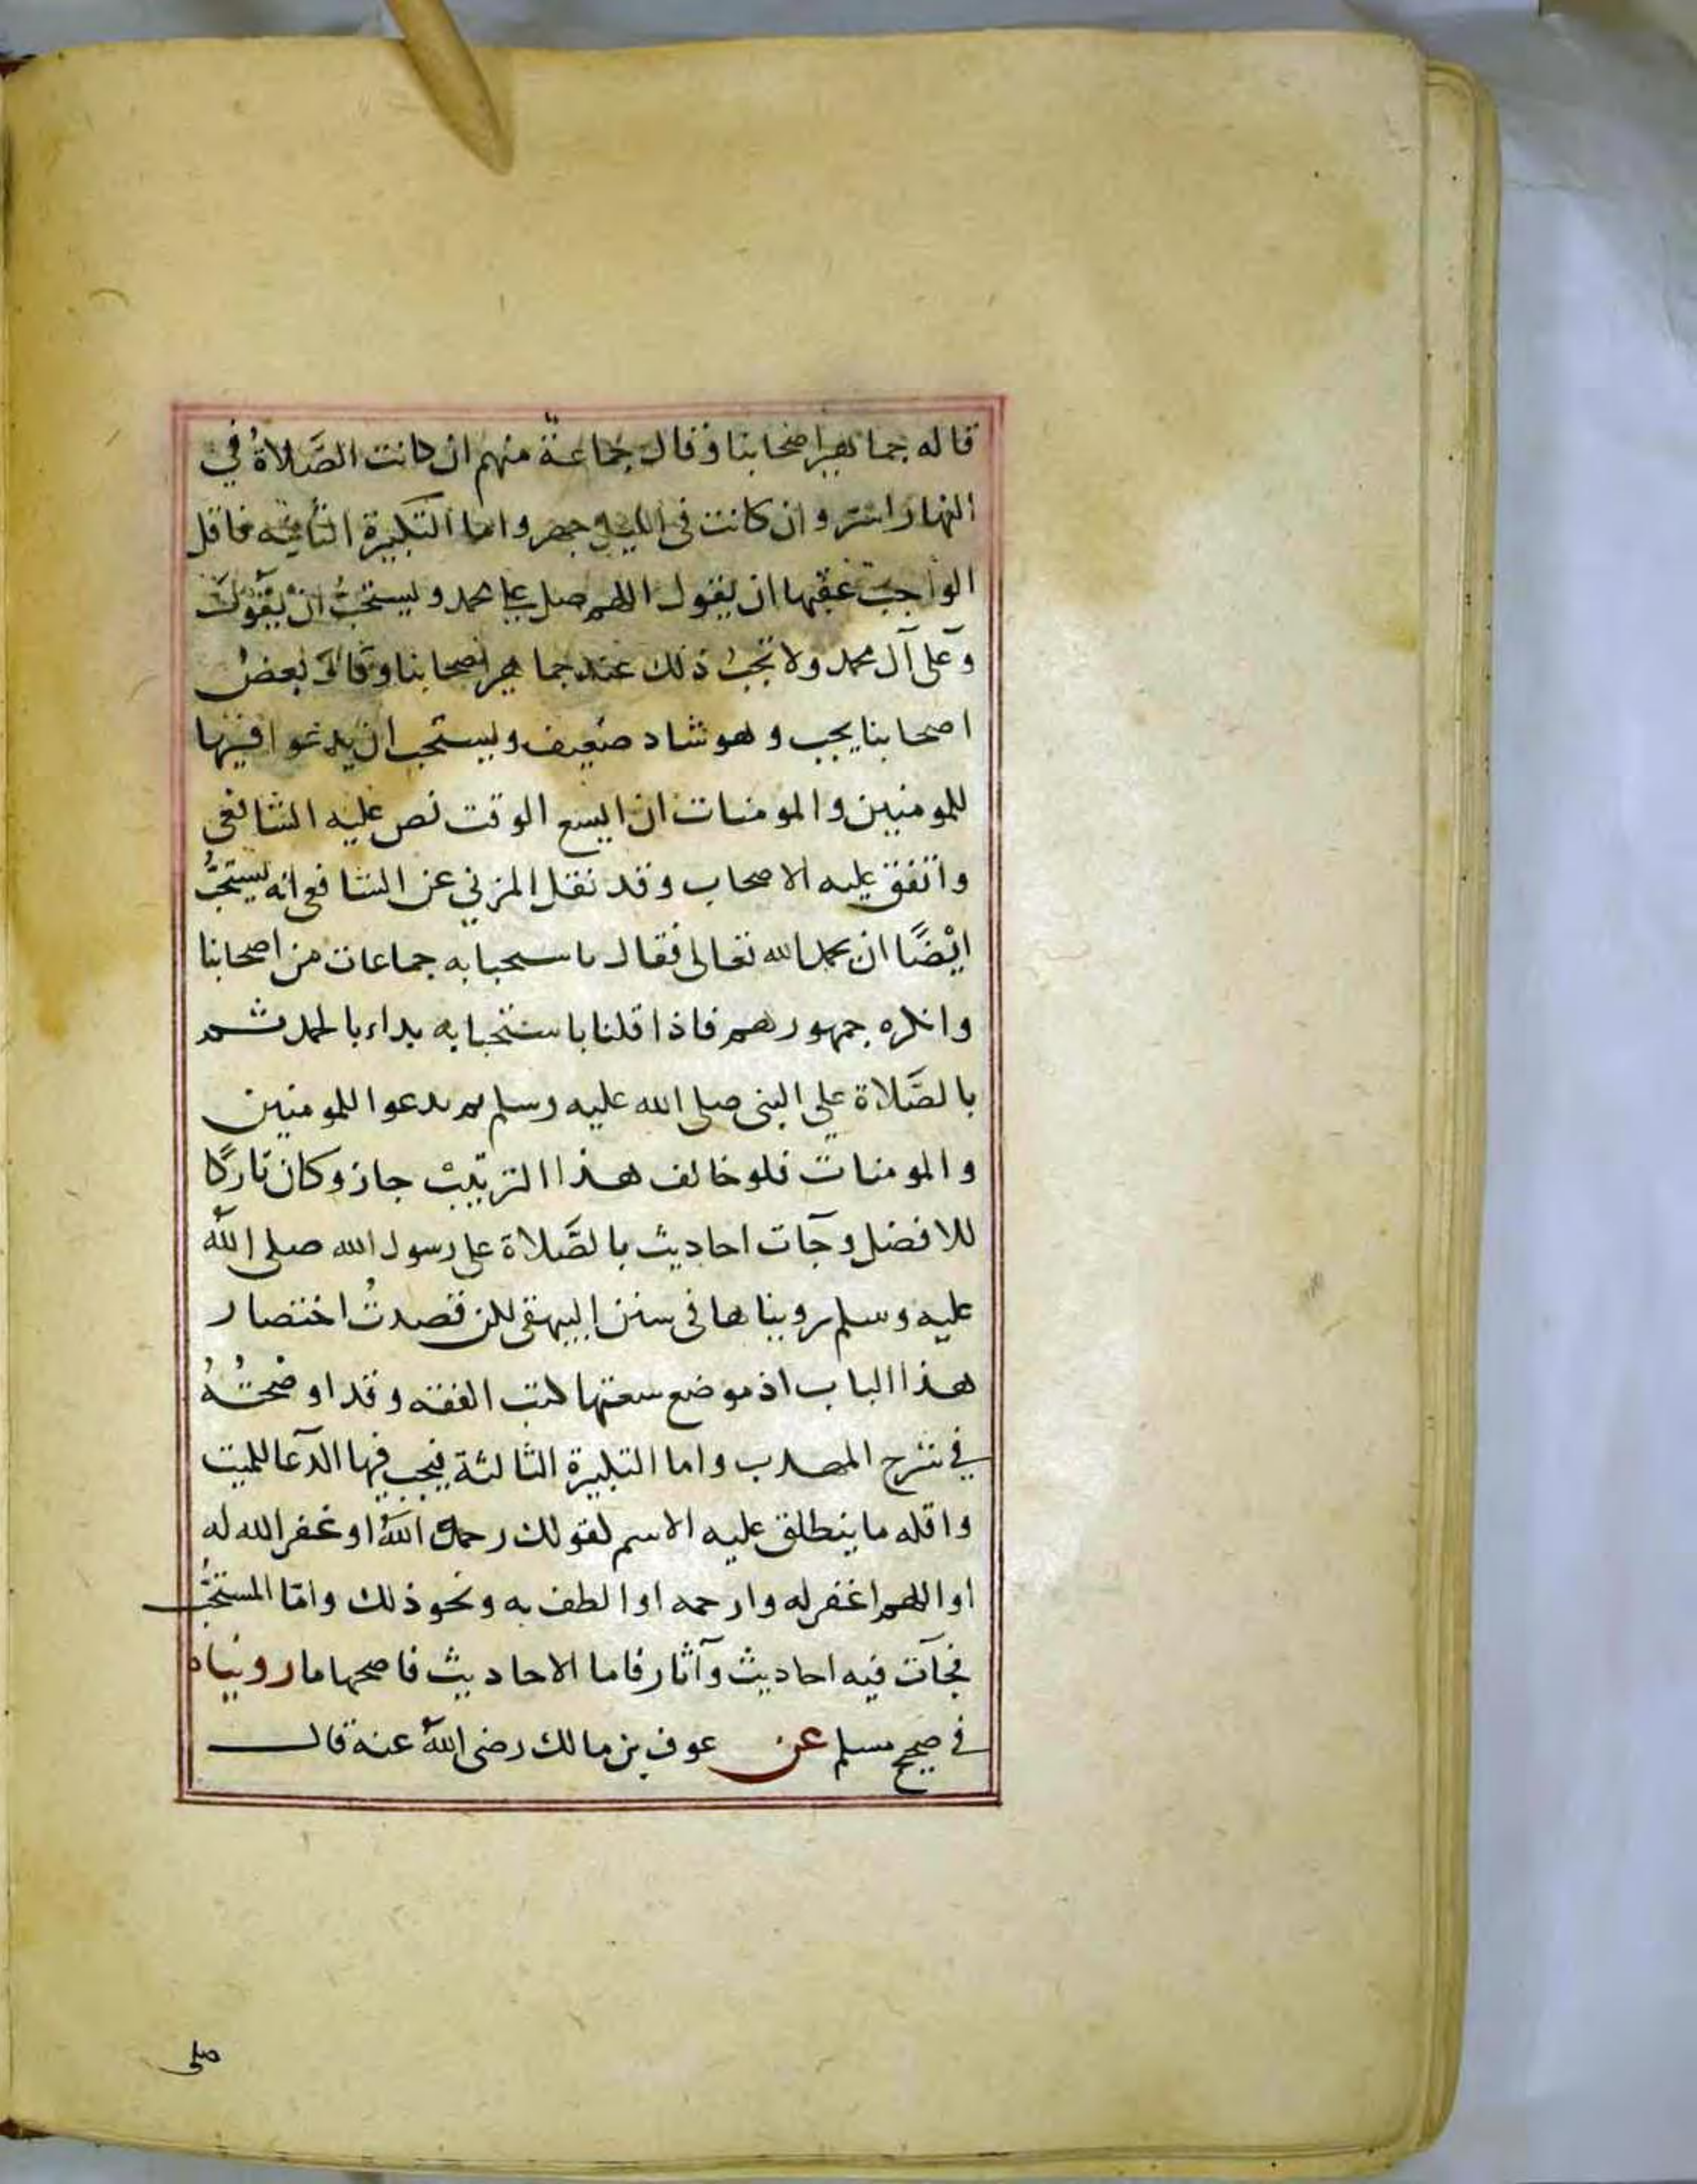 قاله جماهير اصحابنا وقال جماعة منهم ان كانت الصَّلاةُ في
النهار اسرّ وان كانت في الليل جهر واما التكبيرة الثانية فاقل
الواجب عقبها ان يقول اللهم صل على محمد ويستحبُّ انْ يقول
وَعلى آل محمد ولا تجبُ ذلك عند جماهير اصحابنا وقال بعض
اصحابنا يجب وهو شاد ضعيف ويستحب ان يدعوا فيها
للمومنين والمومنات ان اتسع الوقت نص عليه الشافعي
واتفق عليه الاصحاب وقد نقل المزني عن الشافعي انه يستحبُّ
ايْضًا ان يحمد الله تعالى فقال باستحبابه جماعات من اصحابنا
وانكره جمهورهم فاذا قلنا باستحبابه بداء بالحمد ثم
بالصَّلاة على النبي صلى الله عليه وسلم ثم يدعوا للمومنين
والمومنات فلو خالف هذا الترتيبْ جاز وكان تاركًا
للافضل وجآت احاديث بالصَّلاة على رسول الله صلى اللهُ
عليه وسلم رويناها في سنن البيهقي لكن قصدتُ اختصار
هذا الباب اذ موضع سعتها كتب الفقه وقد اوضحتُهُ
في شرح المهدب واما التكبيرة الثالثة فيجب فيها الدعآ للميت
واقله ما ينطلق عليه الاسم لقولك رحمك اللهُ او غفر الله له
او اللهم اغفر له وارحمه او الطف به ونحو ذلك وامّا المستحبُّ
فجآت فيه احاديث وآثار فاما الاحاديث فاصحها ما رويناه
في صحيح مسلم عن عوف بن مالك رضى اللهُ عنه قال
صلى